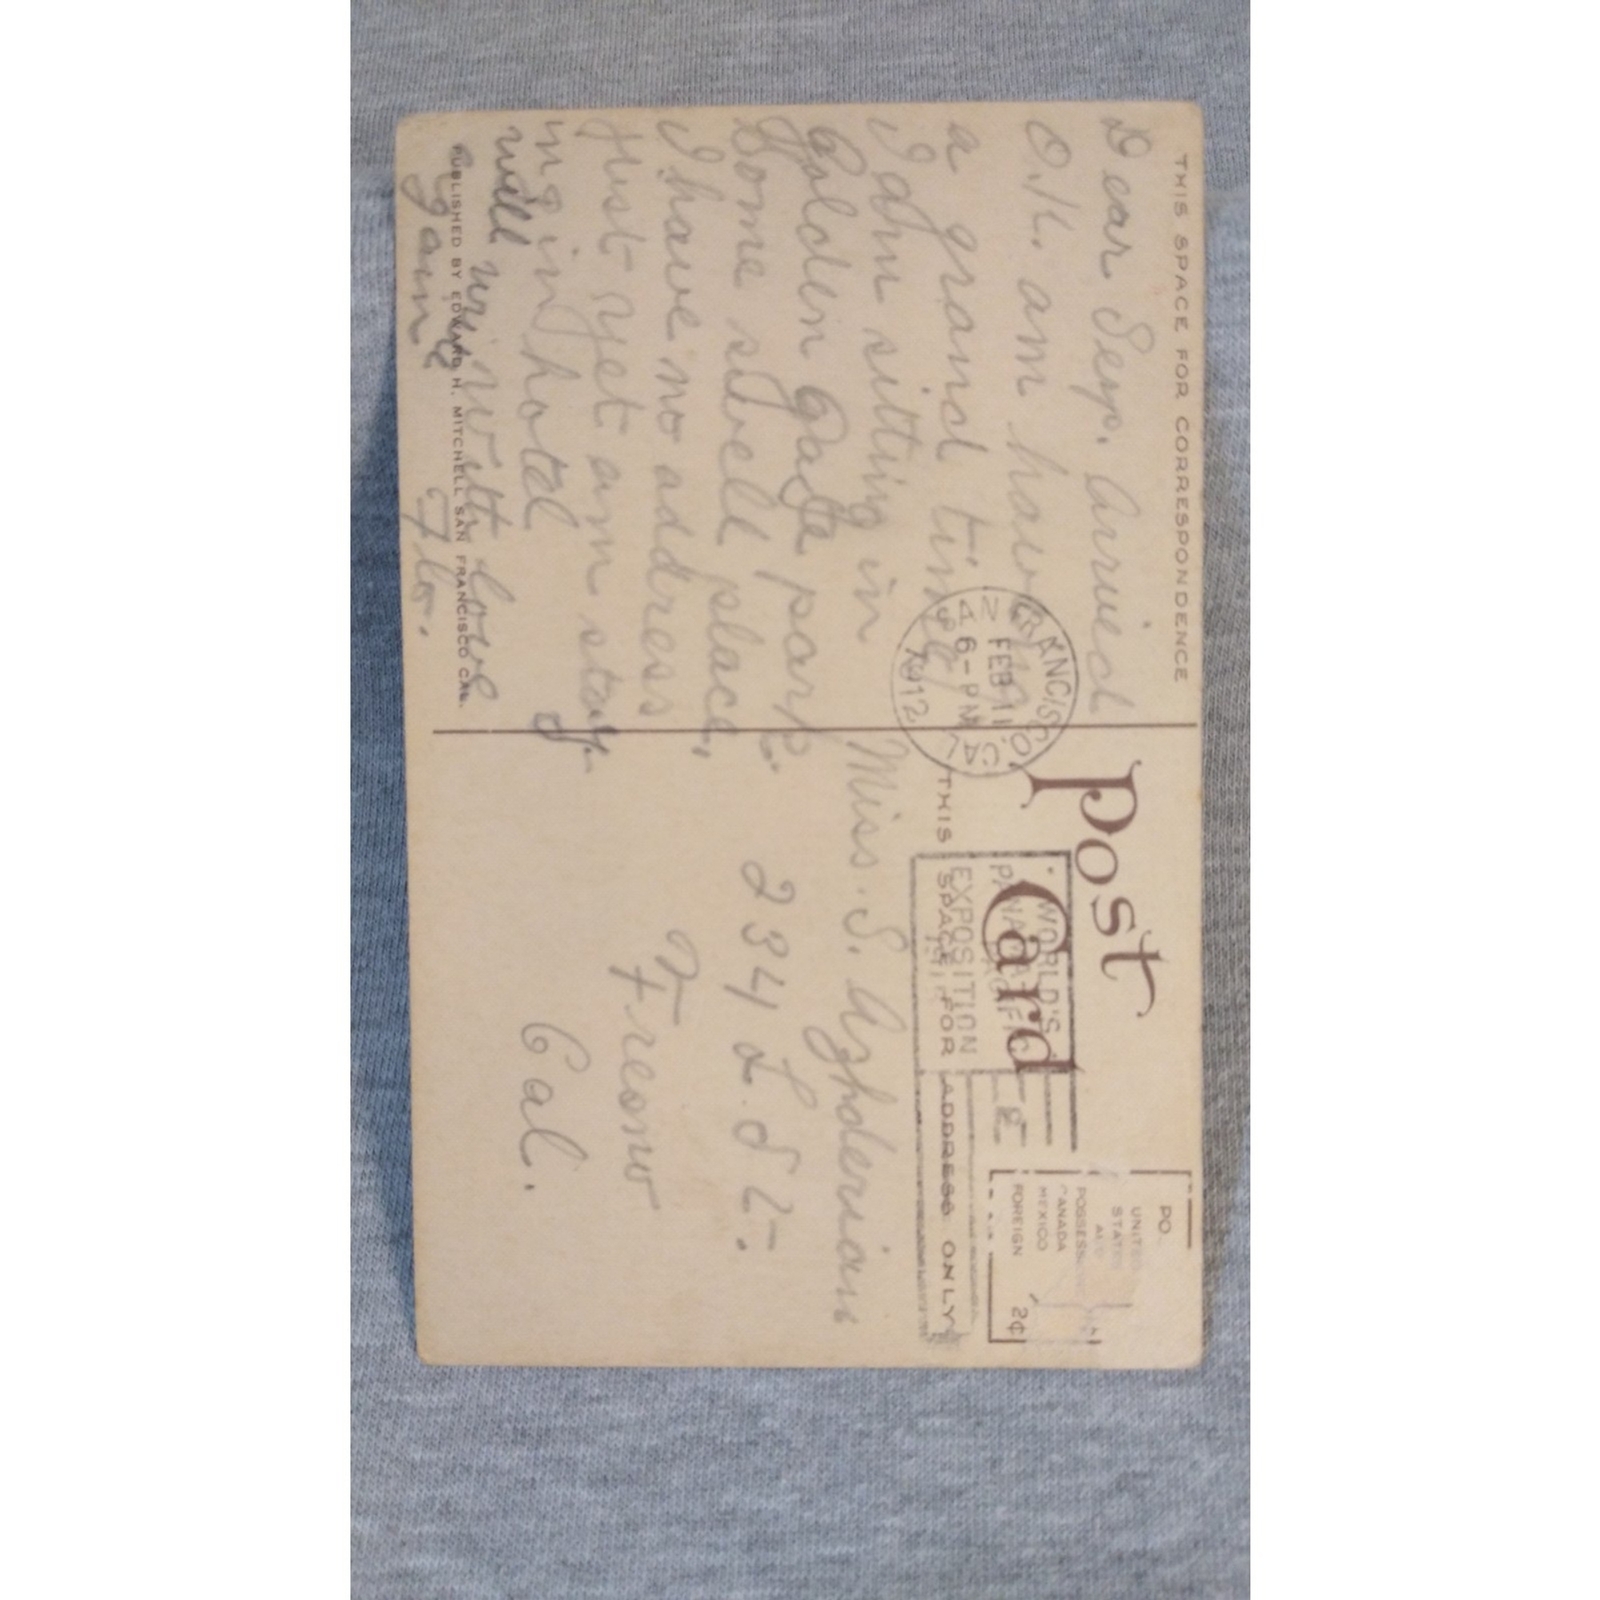 THIS SPACE FOR CORRESPONDENCE
Dear Serp. Arrived
O.K. am having
a grand time
I am sitting in
Golden Gate park.
Some swell place,
I have no address
just yet am stay-
ing in hotel
will write with love
again Flo.
PUBLISHED BY EDWARD H. MITCHELL SAN FRANCISCO CAL.
SAN FRANCISCO, CAL
FEB 11
6-PM
1912
Post
Card
WORLD'S
PANAMA PACIFIC
EXPOSITION
THIS SPACE FOR ADDRESS ONLY
PO
UNITED
STATES
AND
POSSESS
CANADA
MEXICO
FOREIGN 2¢
Miss. S.
234 L. St.
Fresno
Cal.